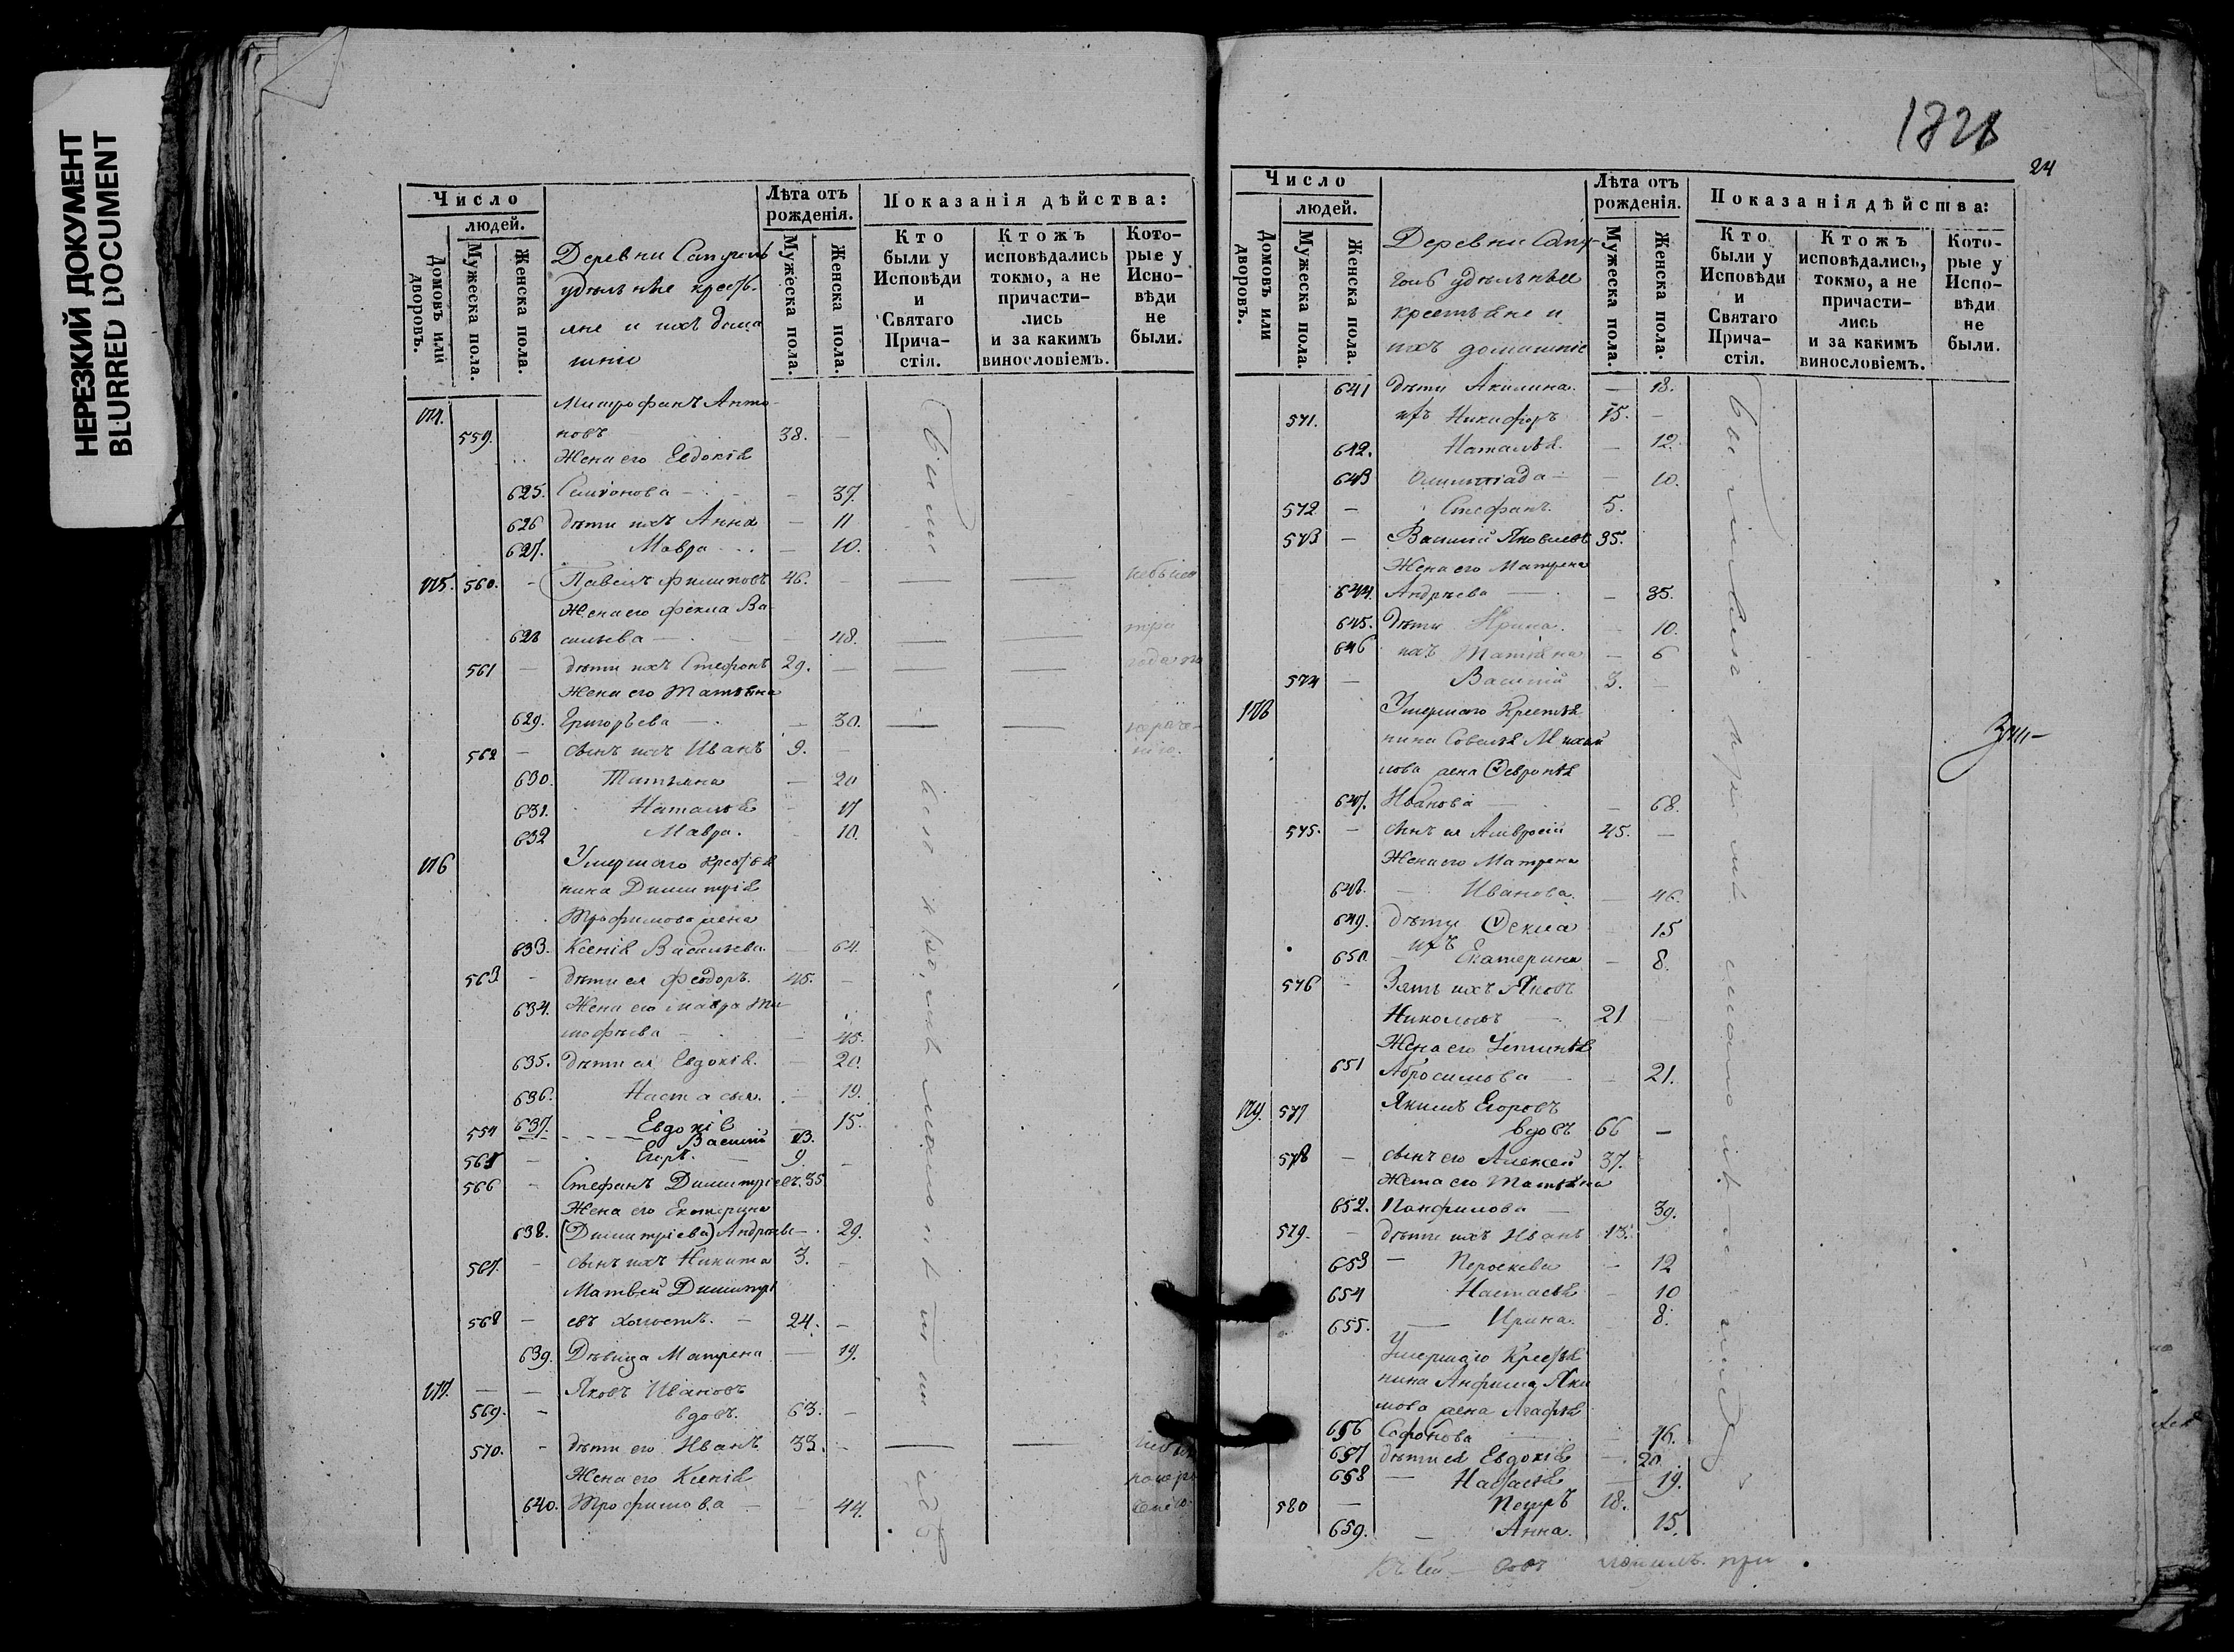 НЕРЕЗКИЙ ДОКУМЕНТ
BLURRED DOCUMENT
Число
людей.
Домовъ или дворовъ.
Мужеска пола.
Женска пола.
Деревни
удѣльные кресть-
яне и ихъ дома
шніи
Лѣта отъ рожденія.
Мужеска пола.
Женска пола.
Показанія дѣйства:
Кто были у Исповѣди и Святаго Прича-стія.
Ктожъ исповѣдались токмо, а не причасти-лись и за какимъ винословіемъ.
Кото-рые у Испо-вѣди не были.
174. Митрофанъ Анто-
559. новъ 38. —
Жена его Евдокія
625. — 37.
626 дѣти ихъ Анна — 11
627. Мавра — 10.
175. 560. - Павелъ Филиповъ 46.
Жена его Фекла Ва-
628 сильева — 48.
561 — дѣти ихъ Стефанъ 29. —
Жена его Татьяна
629. Григорьева — 30.
562 — сынъ ихъ Иванъ 9. —
630. Татьяна — 20
631. Наталья — 17
632 Мавра. — 10.
176 Умершаго кресть я
нина Димитрія
Трофимова жена
633. Ксенія Васильева. — 64.
563 - дѣти ея Феодоръ. 45. —
634. Жена его Мавра Ти-
мофѣева — 45.
635. дѣти ея Евдокія. — 20.
636. Настасья. — 19.
637. Евдокія 15.
554 Василій 13.
565 — Егоръ. 9. —
566 - Стефанъ Димитріевъ. 35
Жена его Екатерина
638. (Димитріева) Андреевa — 29.
567. - сынъ ихъ Никита 3. —
Матвей Димитрі
568 — евъ холостъ. — 24. —
639. Дѣвица Матрена — 19.
177. — — Яковъ Ивановъ
569. - вдовъ. 63. —
570. - дѣти его Иванъ 33. —
Жена его Ксенія
640. Трофимова — 44.
1828
24
Число
людей.
Домовъ или дворовъ.
Мужеска пола.
Женска пола.
Деревни
удѣльные
крестьяне и
ихъ домашніе
Лѣта отъ рожденія.
Мужеска пола.
Женска пола.
Показанія дѣйства:
Кто были у Исповѣди и Святаго Прича-стія.
Ктожъ исповѣдались, токмо, а не причасти-лись и за какимъ винословіемъ.
Кото-рые у Испо-вѣди не были.
641 дѣти Акилина. — 18.
571. ихъ Никифоръ 15. —
642. Наталья. — 12.
643 Олимпіада — 10.
572 — Стефанъ. 5.
573 — Василій Яковлевъ 35.
Жена его Матрена
644. Андреева — 35.
645. дѣти Ирина. — 10.
646 ихъ Татьяна — 6
574 — Василій 3. —
178 Умершаго Крестья
нина Савелья Михай
лова жена Ѳевронья
647. Иванова — 68.
575. — сынъ ея Амвросій 45. —
Жена его Матрена
648. — Иванова. — 46.
649. дѣти Ѳекла — 15
650. ихъ Екатерина — 8.
576 — Зять ихъ Яковъ
21 —
Жена его
651 Абросимова — 21.
179. 577 Якимъ Егоровъ
вдовъ 66 —
578 — сынъ его Алексей 37.
Жена его Татьяна
652. Панфилова — 39.
579. — дѣти ихъ Иванъ 13.
653 — Пероскева — 12
654 Настасья — 10
655. — Ирина. 8.
Умершаго Крестья
нина Анфима Яки
мова жена Агафья
656 Сафонова — 46.
657 дѣти ея Евдокія — 20
658 — Настасья — 19.
580 — Петръ 18.
659. — Анна. 15.